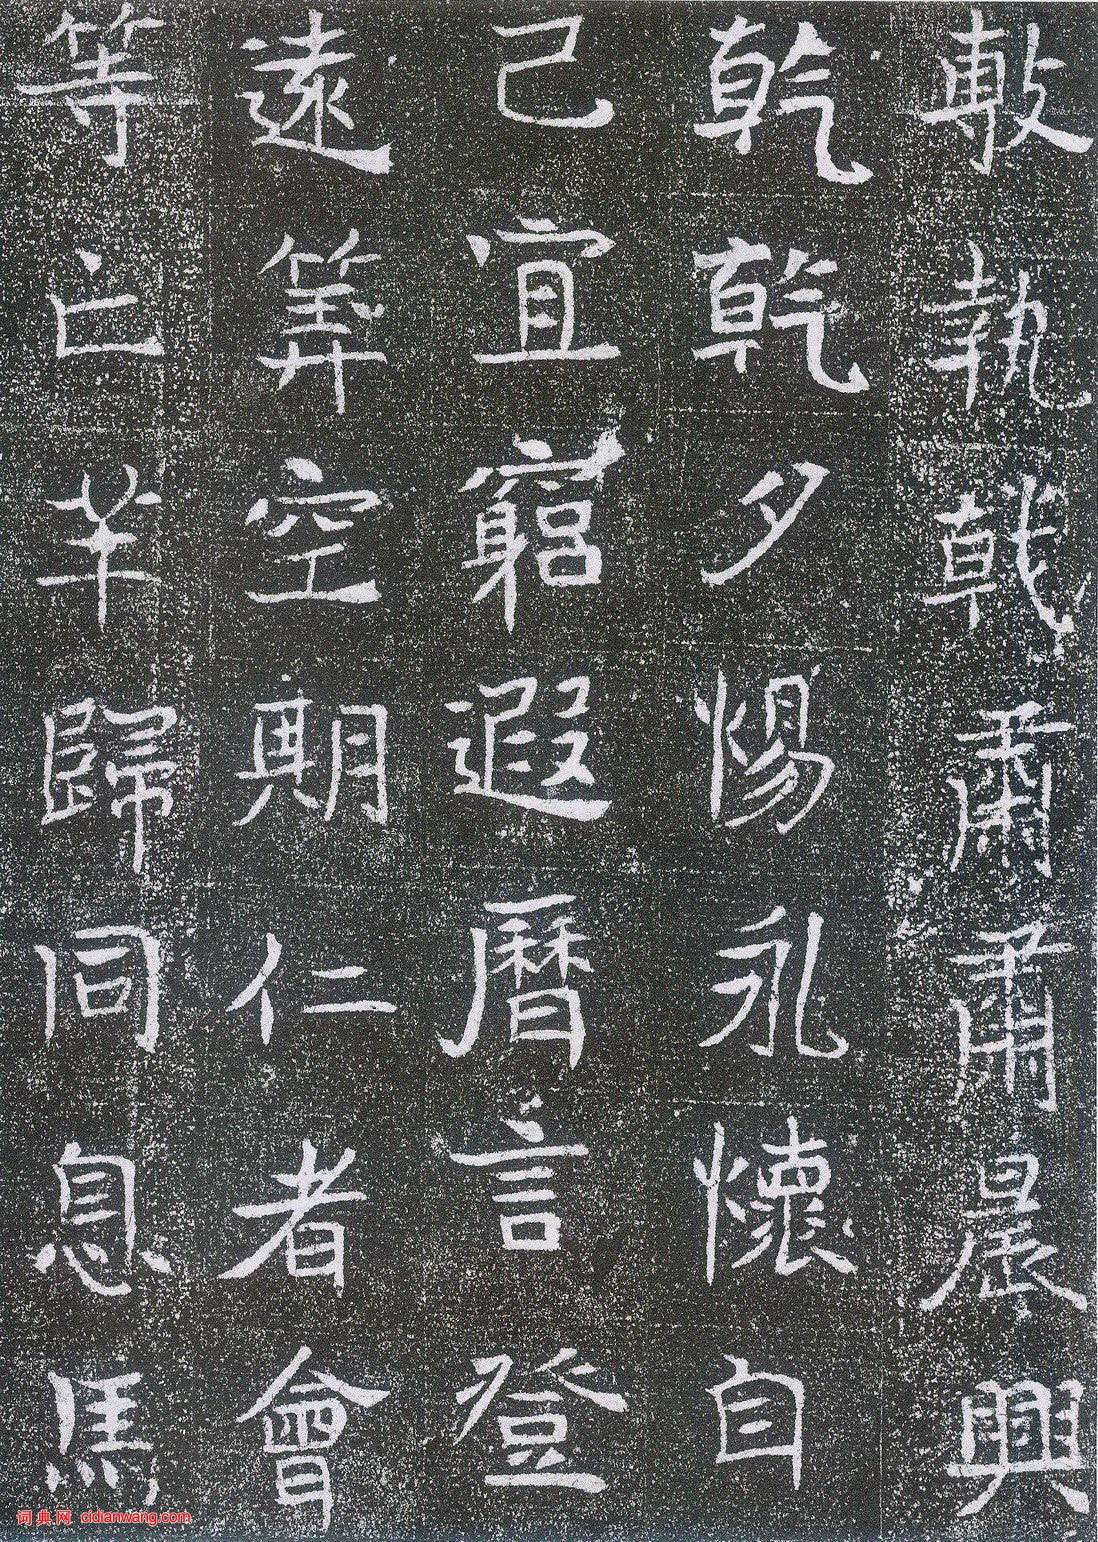 敷執戟肅肅晨興
乾乾夕惕永懷自
己宜窮遐曆言登
遠筭空期仁者會
等亡羊歸同息馬
词典网 cidianwang.com